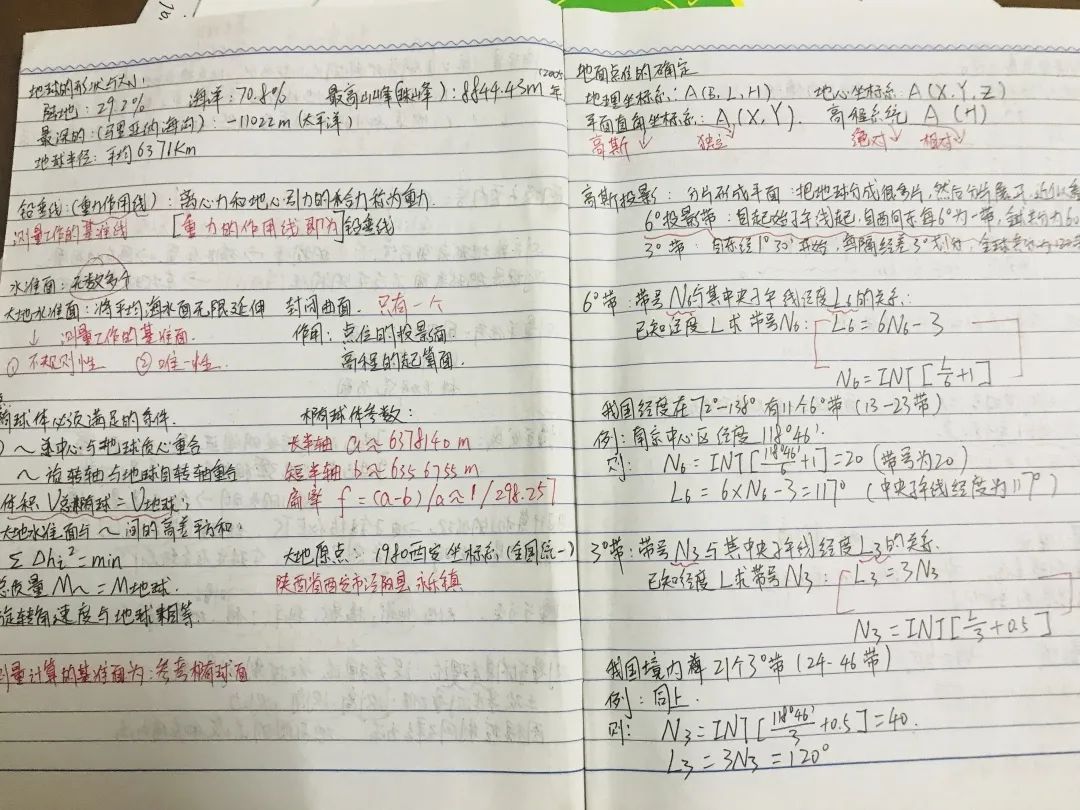 地球的形状与大小:
陆地:29.2% 海洋:70.8% 最高山峰(珠峰):8844.43m (2005年
最深的:(马里亚纳海沟):-11022m(太平洋)
地球半径:平均6371Km
铅垂线:(重力作用线):离心力和地心引力的合力称为重力.
测量工作的基准线 [重力的作用线即为]铅垂线
水准面:无数多个
大地水准面:将平均海水面无限延伸 封闭曲面. 只有一个
↓ 测量工作的基准面. 作用:点位的投影面.
① 不规则性 ②唯一性. 高程的起算面.
椭球体必须满足的条件. 椭球体参数:
) ~ 中心与地球质心重合 长半轴 a≈6378140m
~ 旋转轴与地球自转轴重合 短半轴 b≈6356755m
体积 V总椭球=V地球; 扁率 f=(a-b)/a≈1/298.257
大地水准面与~间的高差平方和:
ΣΔhi²=min 大地原点:1980西安坐标系(全国统一)
总质量 M~=M地球. 陕西省西安市泾阳县永乐镇
旋转角速度与地球相等.
测量计算的基准面为:参考椭球面
地面点位的确定
地理坐标系:A(B,L,H) 地心坐标系:A(X,Y,Z)
平面直角坐标系:A(X,Y). 高程系统 A(H)
高斯↙ 独立↘ 绝对↙ 相对↘
高斯投影:分片形成平面:把地球分成很多片,然后分片展开,
6°投影带:自起始子午线起,自西向东每6°为一带,全球分为60
3°带:自东经1°30′开始,每隔经差3°划分,全球
6°带:带号N6与其中央子午线经度L6的关系:
已知经度L求带号N6: L6=6N6-3
N6=INT[L/6+1]
我国经度在72°-138°有11个6°带(13-23带)
例:南京中心区经度118°46′.
则: N6=INT[118°46′/6+1]=20(带号为20)
L6=6×N6-3=117°(中央子午线经度为117°)
3°带:带号N3与其中央子午线经度L3的关系.
已知经度L求带号N3: L3=3N3
N3=INT[L/3+0.5]
我国境内 21个3°带(24-46带)
例:同上.
则: N3=INT[118°46′/3+0.5]=40.
L3=3N3=120°